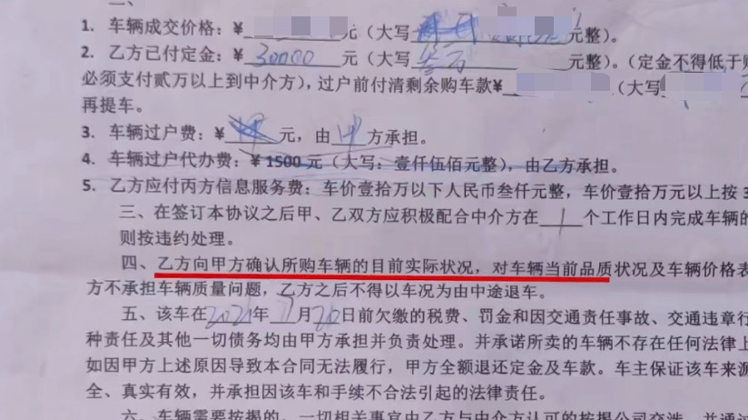 二、
1. 车辆成交价格：¥ 元（大写 元整）。
2. 乙方已付定金：¥ 30000 元（大写 叁万 元整）。（定金不得低于
必须支付贰万以上到中介方），过户前付清剩余购车款¥ （大写
再提车。
3. 车辆过户费：¥ 元，由 甲 方承担。
4. 车辆过户代办费：¥ 1500 元（大写：壹仟伍佰元整），由乙方承担。
5. 乙方应付丙方信息服务费：车价壹拾万以下人民币叁仟元整，车价壹拾万元以上按 3
三、在签订本协议之后甲、乙双方应积极配合中介方在 1 个工作日内完成车辆的
则按违约处理。
四、乙方向甲方确认所购车辆的目前实际状况，对车辆当前品质状况及车辆价格表
方不承担车辆质量问题，乙方之后不得以车况为由中途退车。
五、该车在 年 月 日前欠缴的税费、罚金和因交通责任事故、交通违章行
种责任及其他一切债务均由甲方承担并负责处理。并承诺所卖的车辆不存在任何法律上
如因甲方上述原因导致本合同无法履行，甲方全额退还定金及车款。车主保证该车来源
全、真实有效，并承担因该车和手续不合法引起的法律责任。
六、车辆需要按揭的，一切相关事宜由乙方与中介方认可的按揭公司交涉，并通过